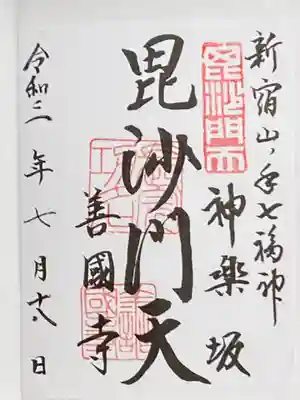 新宿山ノ手七福神
神楽坂
毘沙門天
毘沙門天
善國寺
令和二年七月十八日